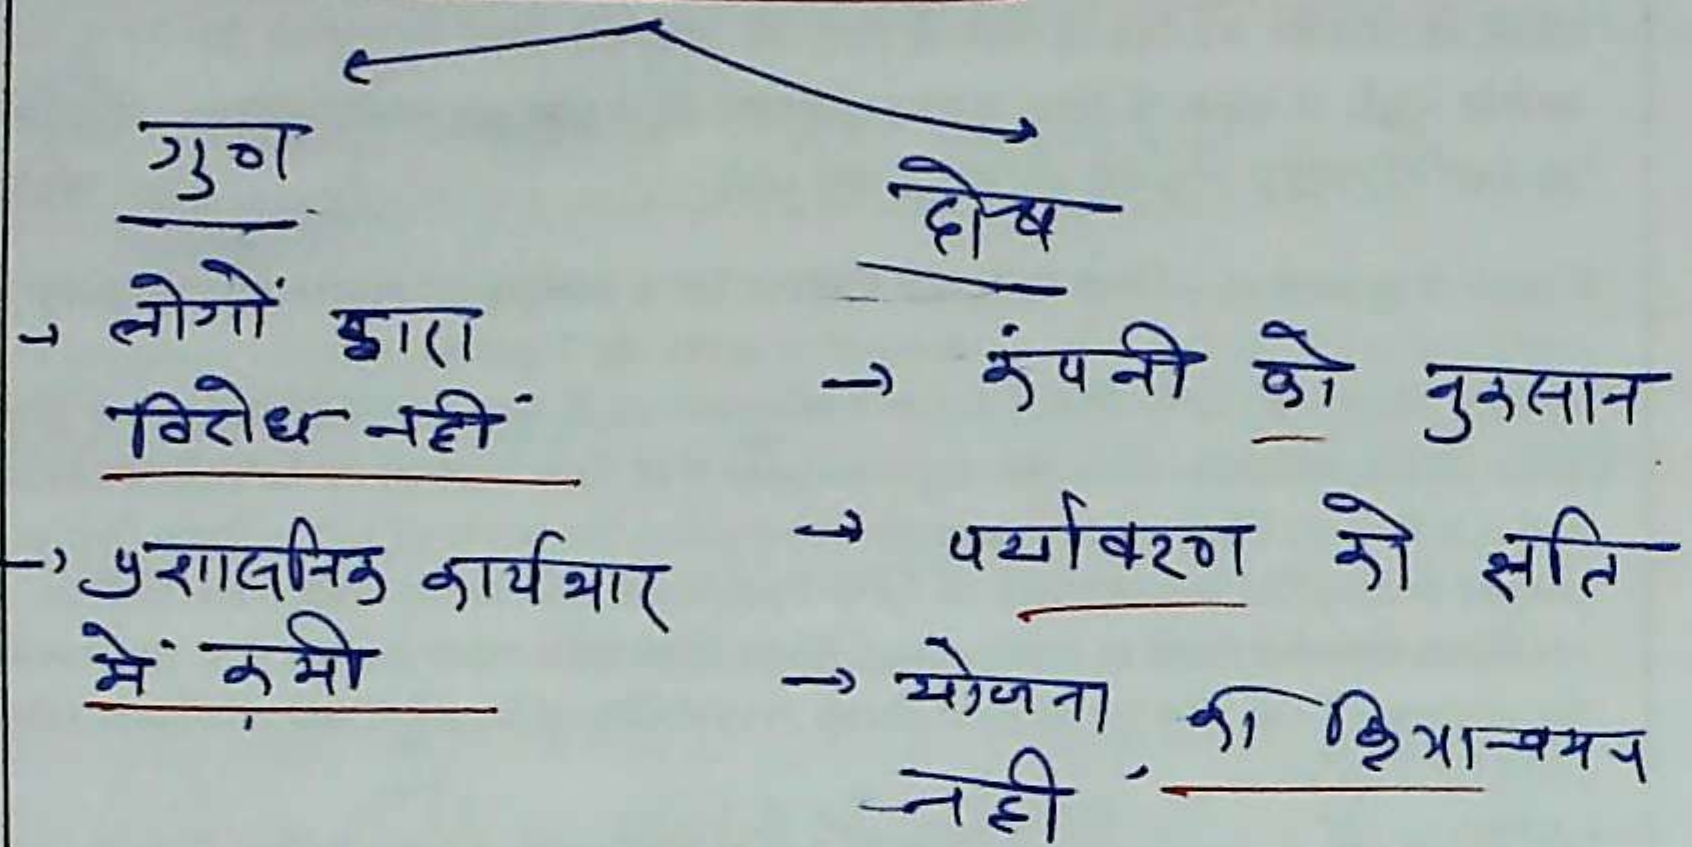 गुण
→ लोगों द्वारा
विरोध नहीं
→ प्रशासनिक कार्यभार
में कमी
दोष
→ कंपनी को नुकसान
→ पर्यावरण को क्षति
→ योजना का क्रियान्वयन
नहीं